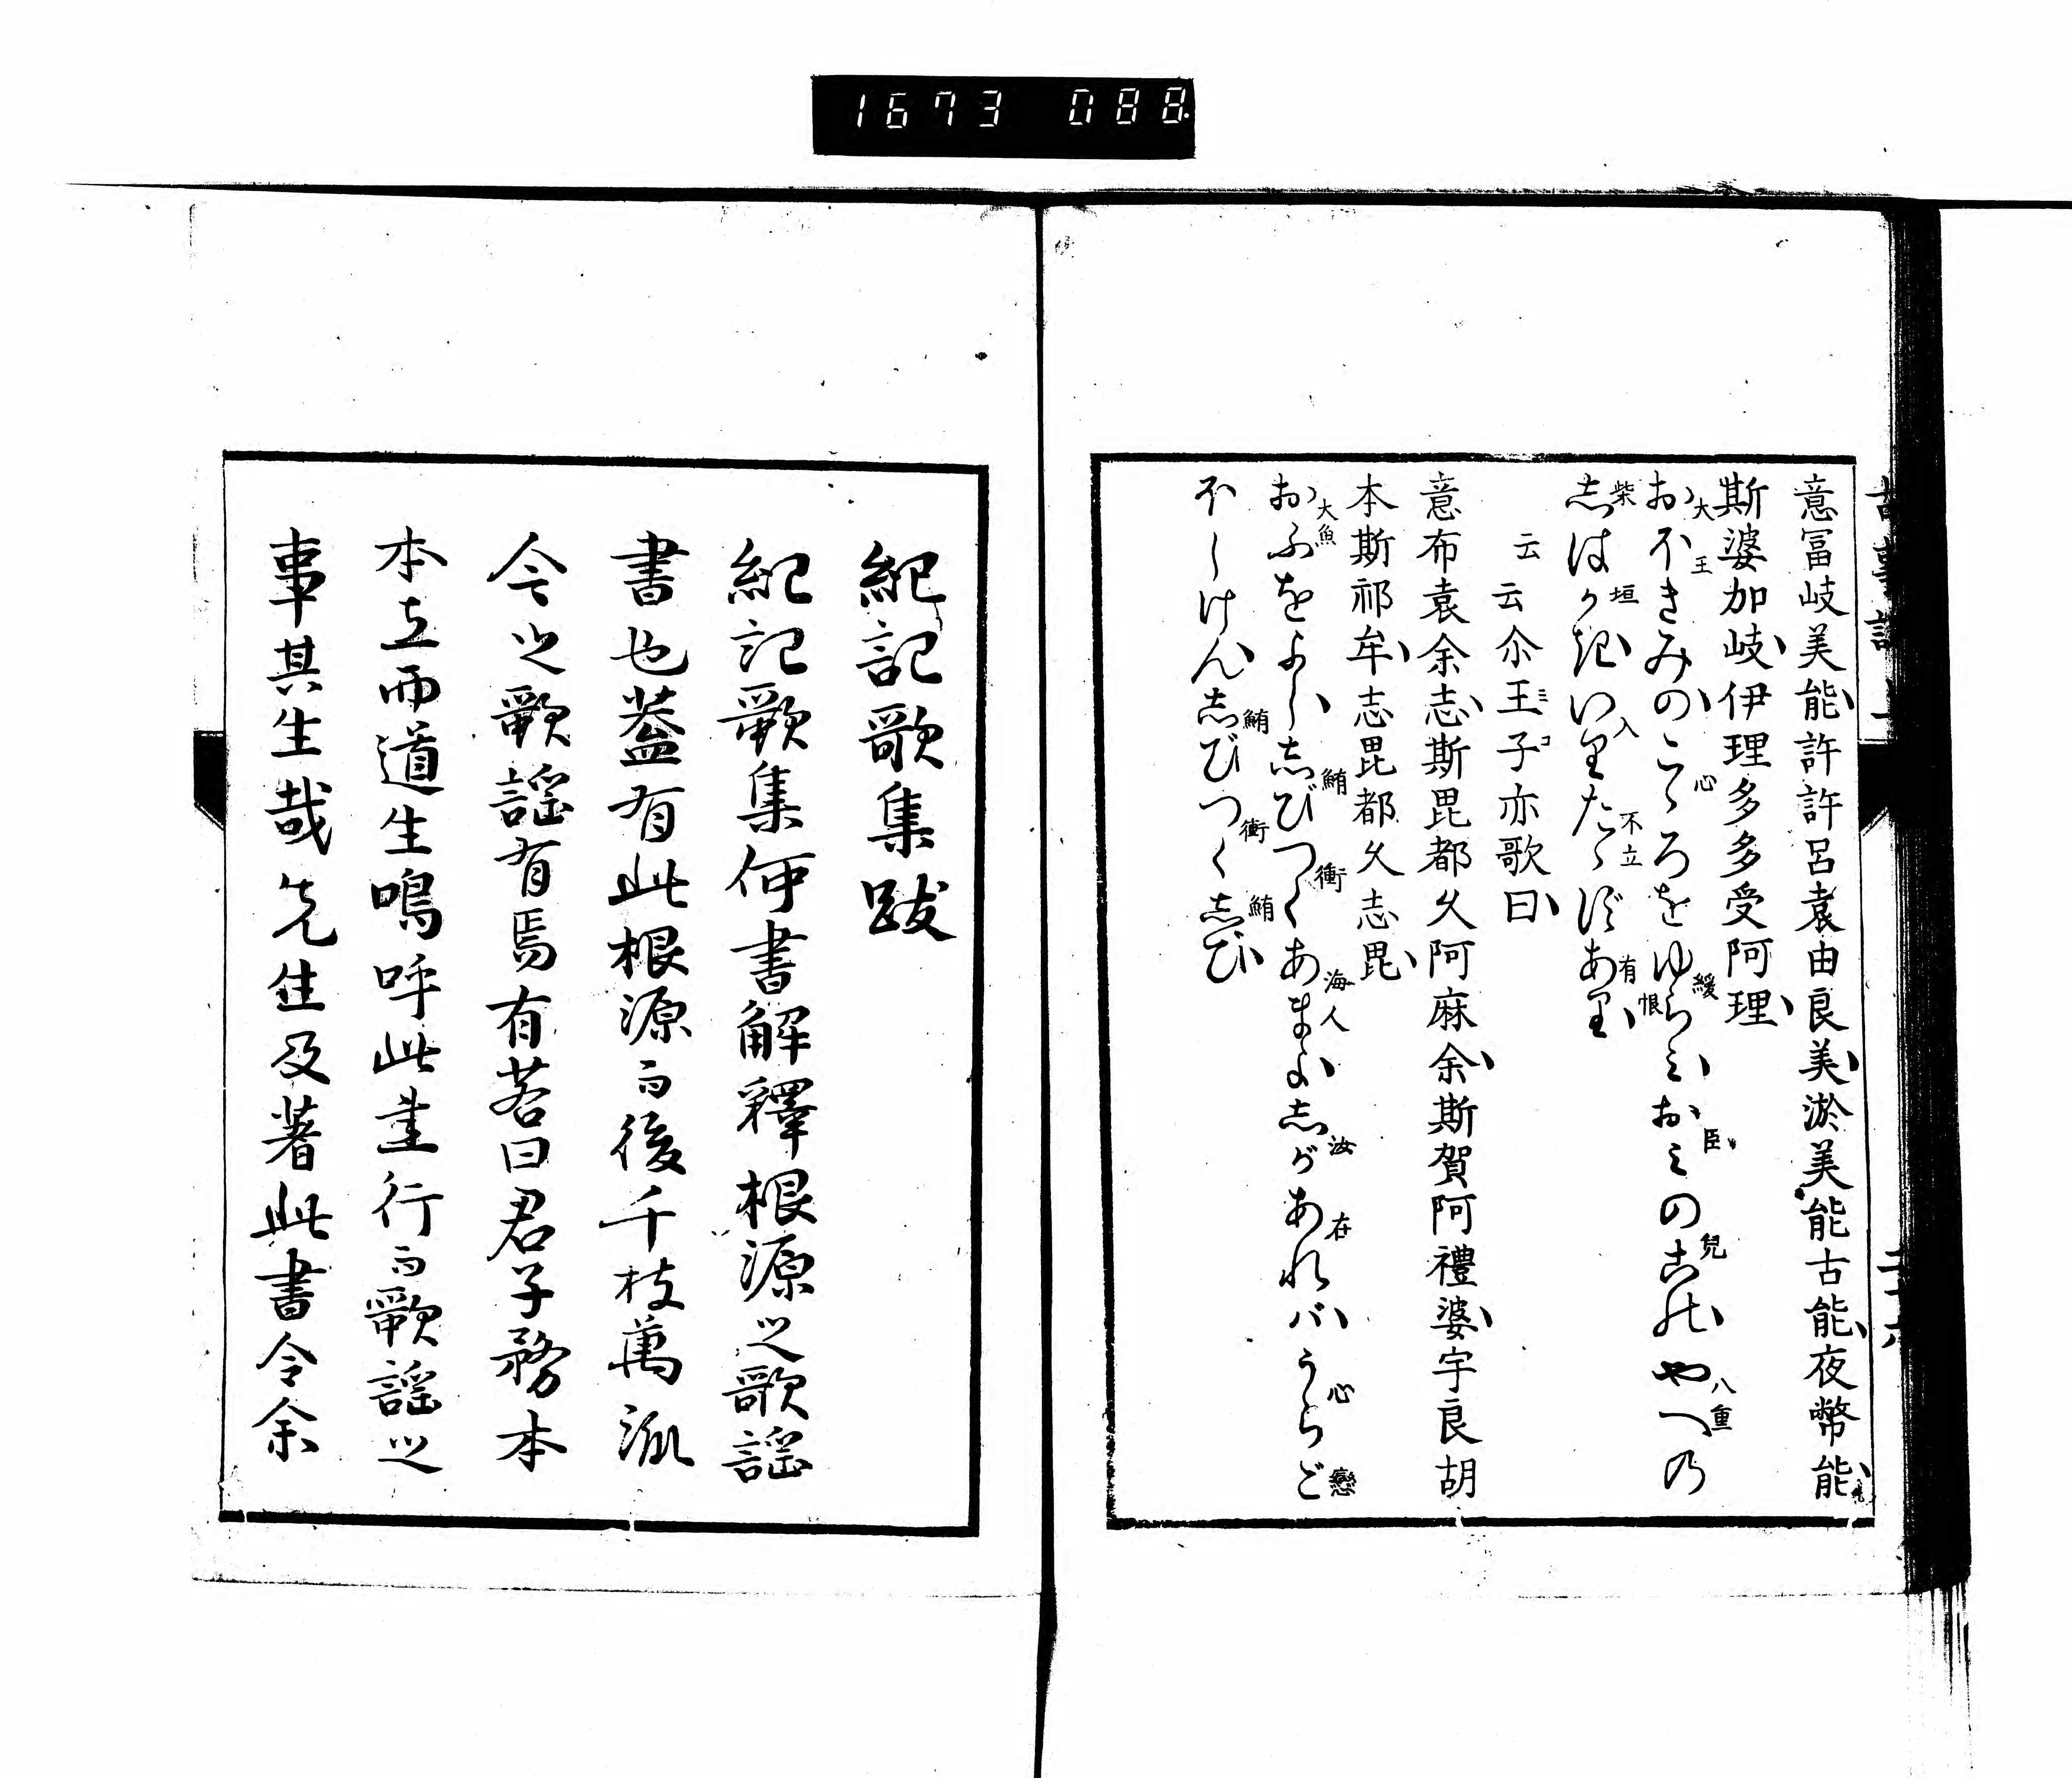 1673 088
意冨岐美能許許呂袁由良美淤美能古能夜幣能
斯婆加岐伊理多多受阿理
おほきみのこゝろをゆらみおみのこのやへの
大王 心 緩 臣 兒 八重
志はかきいりたゝずあり
柴垣 入 不立 有 恨
云云尒王子亦歌曰
ミコ
意布袁余志斯毘都久阿麻余斯賀阿禮婆宇良胡
本斯祁牟志毘都久志毘
おふをよし志びつくあまよ志があれバうらご
大魚 鮪 衝 海人 汝 在 心 戀
ほしけん志びつく志び
鮪 衝 鮪
紀記歌集跋
紀記歌集何書解釋根源之歌謡
書也蓋有此根源而後千枝萬派
今之歌謡有焉有若曰君子務本
本立而道生嗚呼此書行而歌謡之
事其生哉先生及著此書令余